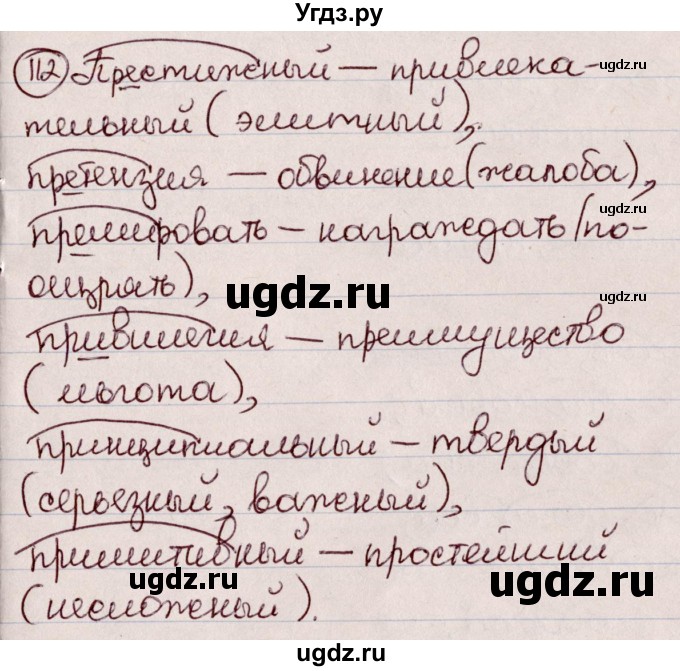 Угдз.ру
ugdz.ru
112 Престижный — привлека-
ugdz.ru
тельный (элитный),
ugdz.ru
претензия — обвинение (жалоба),
ugdz.ru
премировать — награждать (по-
ощрять),
ugdz.ru
ugdz.ru
привилегия — преимущество
(льгота),
принципиальный — твердый
(серьезный, важный),
примитивный — простейший
ugdz.ru
ugdz.ru
(несложный).
ugdz.ru